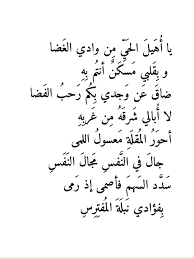 يا أُهَيلَ الحَيِّ مِن وادي الغَضا
و بِقَلبي مَسكَنٌ أنتُم بِهِ
ضاقَ عَن وَجدي بِكُم رَحبُ الفَضا
لا أُبالي شَرقَهُ مِن غَربِهِ
أحوَرُ المُقلَةِ مَعسولُ اللمى
جالَ في النَّفسِ مَجالَ النَفَسِ
سَدَّد السَهمَ فأصمى إذ رَمى
بِفؤادي نَبلَةَ المُفتَرِسِ